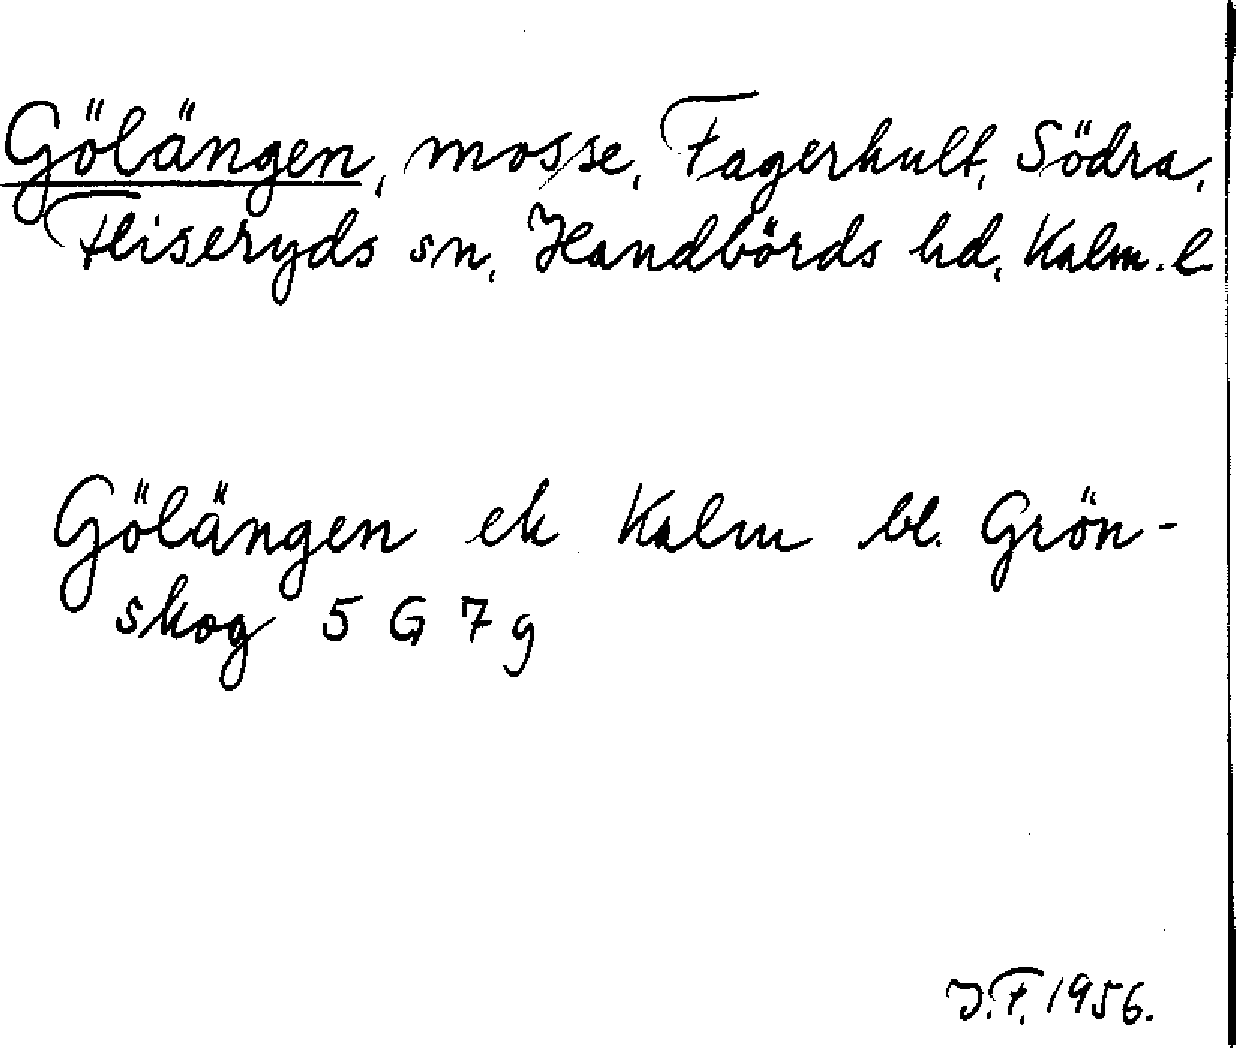 Gölängen, mosse, Fagerhult, Södra,
Fliseryds sn, Handbörds hd, Kalm. l
Gölängen ek Kalm bl. Grön-
skog 5 G 7 g
J.F. 1956.